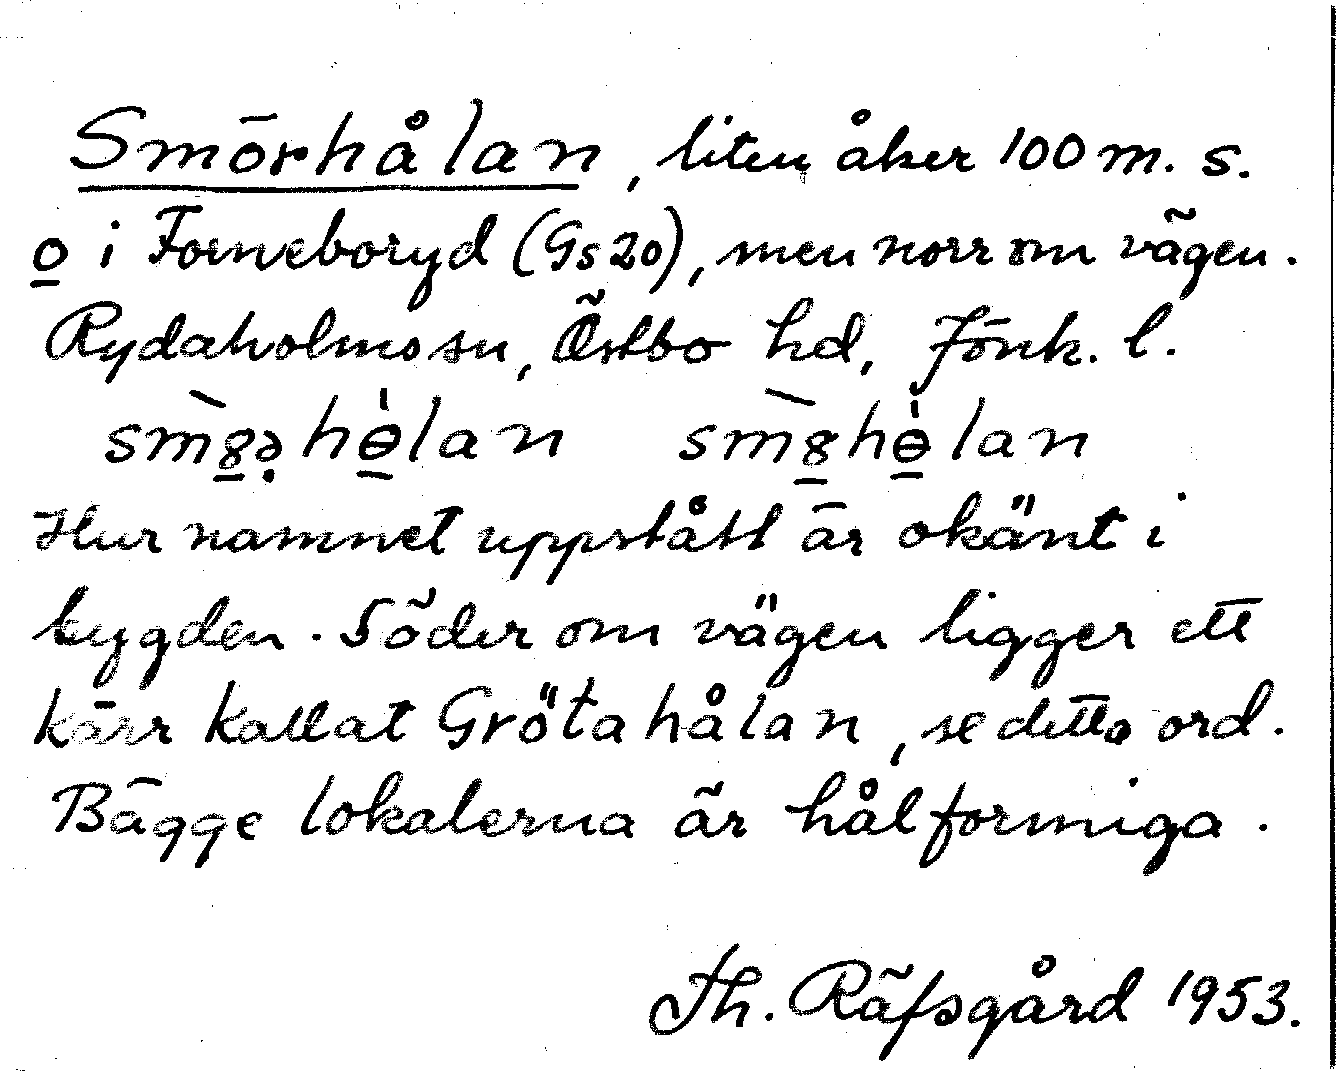 Smörhålan, liten åker 100 m. s.
o i Forneboryd (Gs 20), men norr om vägen.
Rydaholms sn, Östbo hd, Jönk. l.
Hur namnet uppstått är okänt i
bygden. Söder om vägen ligger ett
kärr kallat Grötahålan, se detta ord.
Bägge lokalerna är hålformiga.
Th. Räfsgård 1953.